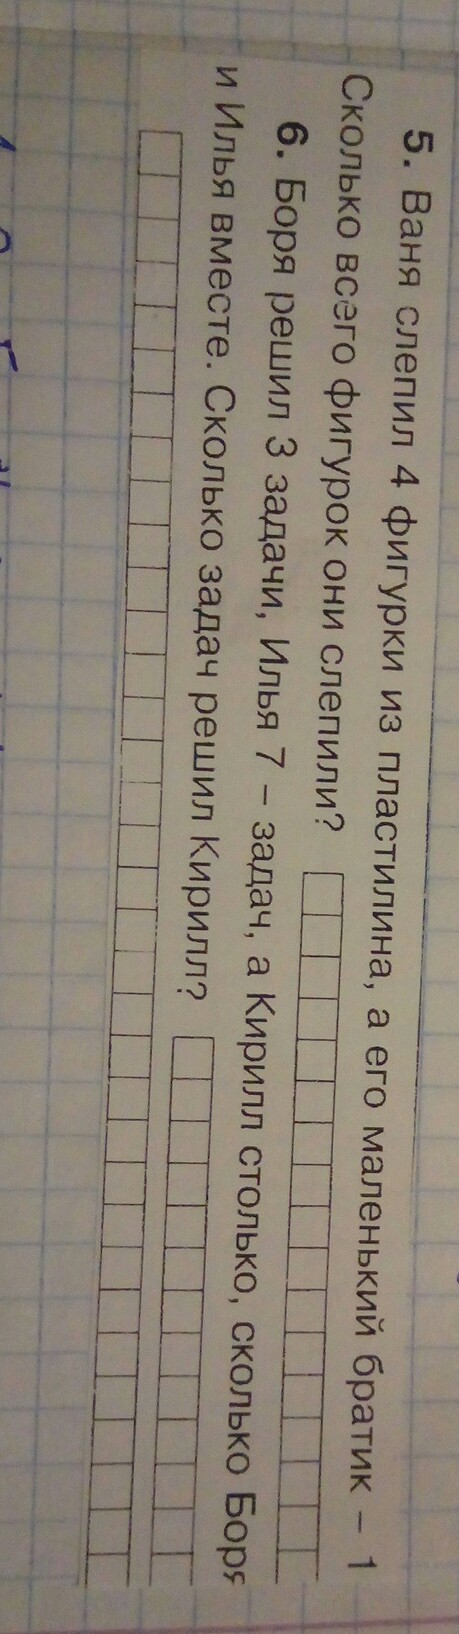 5. Ваня слепил 4 фигурки из пластилина, а его маленький братик – 1
Сколько всего фигурок они слепили?
6. Боря решил 3 задачи, Илья 7 – задач, а Кирилл столько, сколько Боря
и Илья вместе. Сколько задач решил Кирилл?